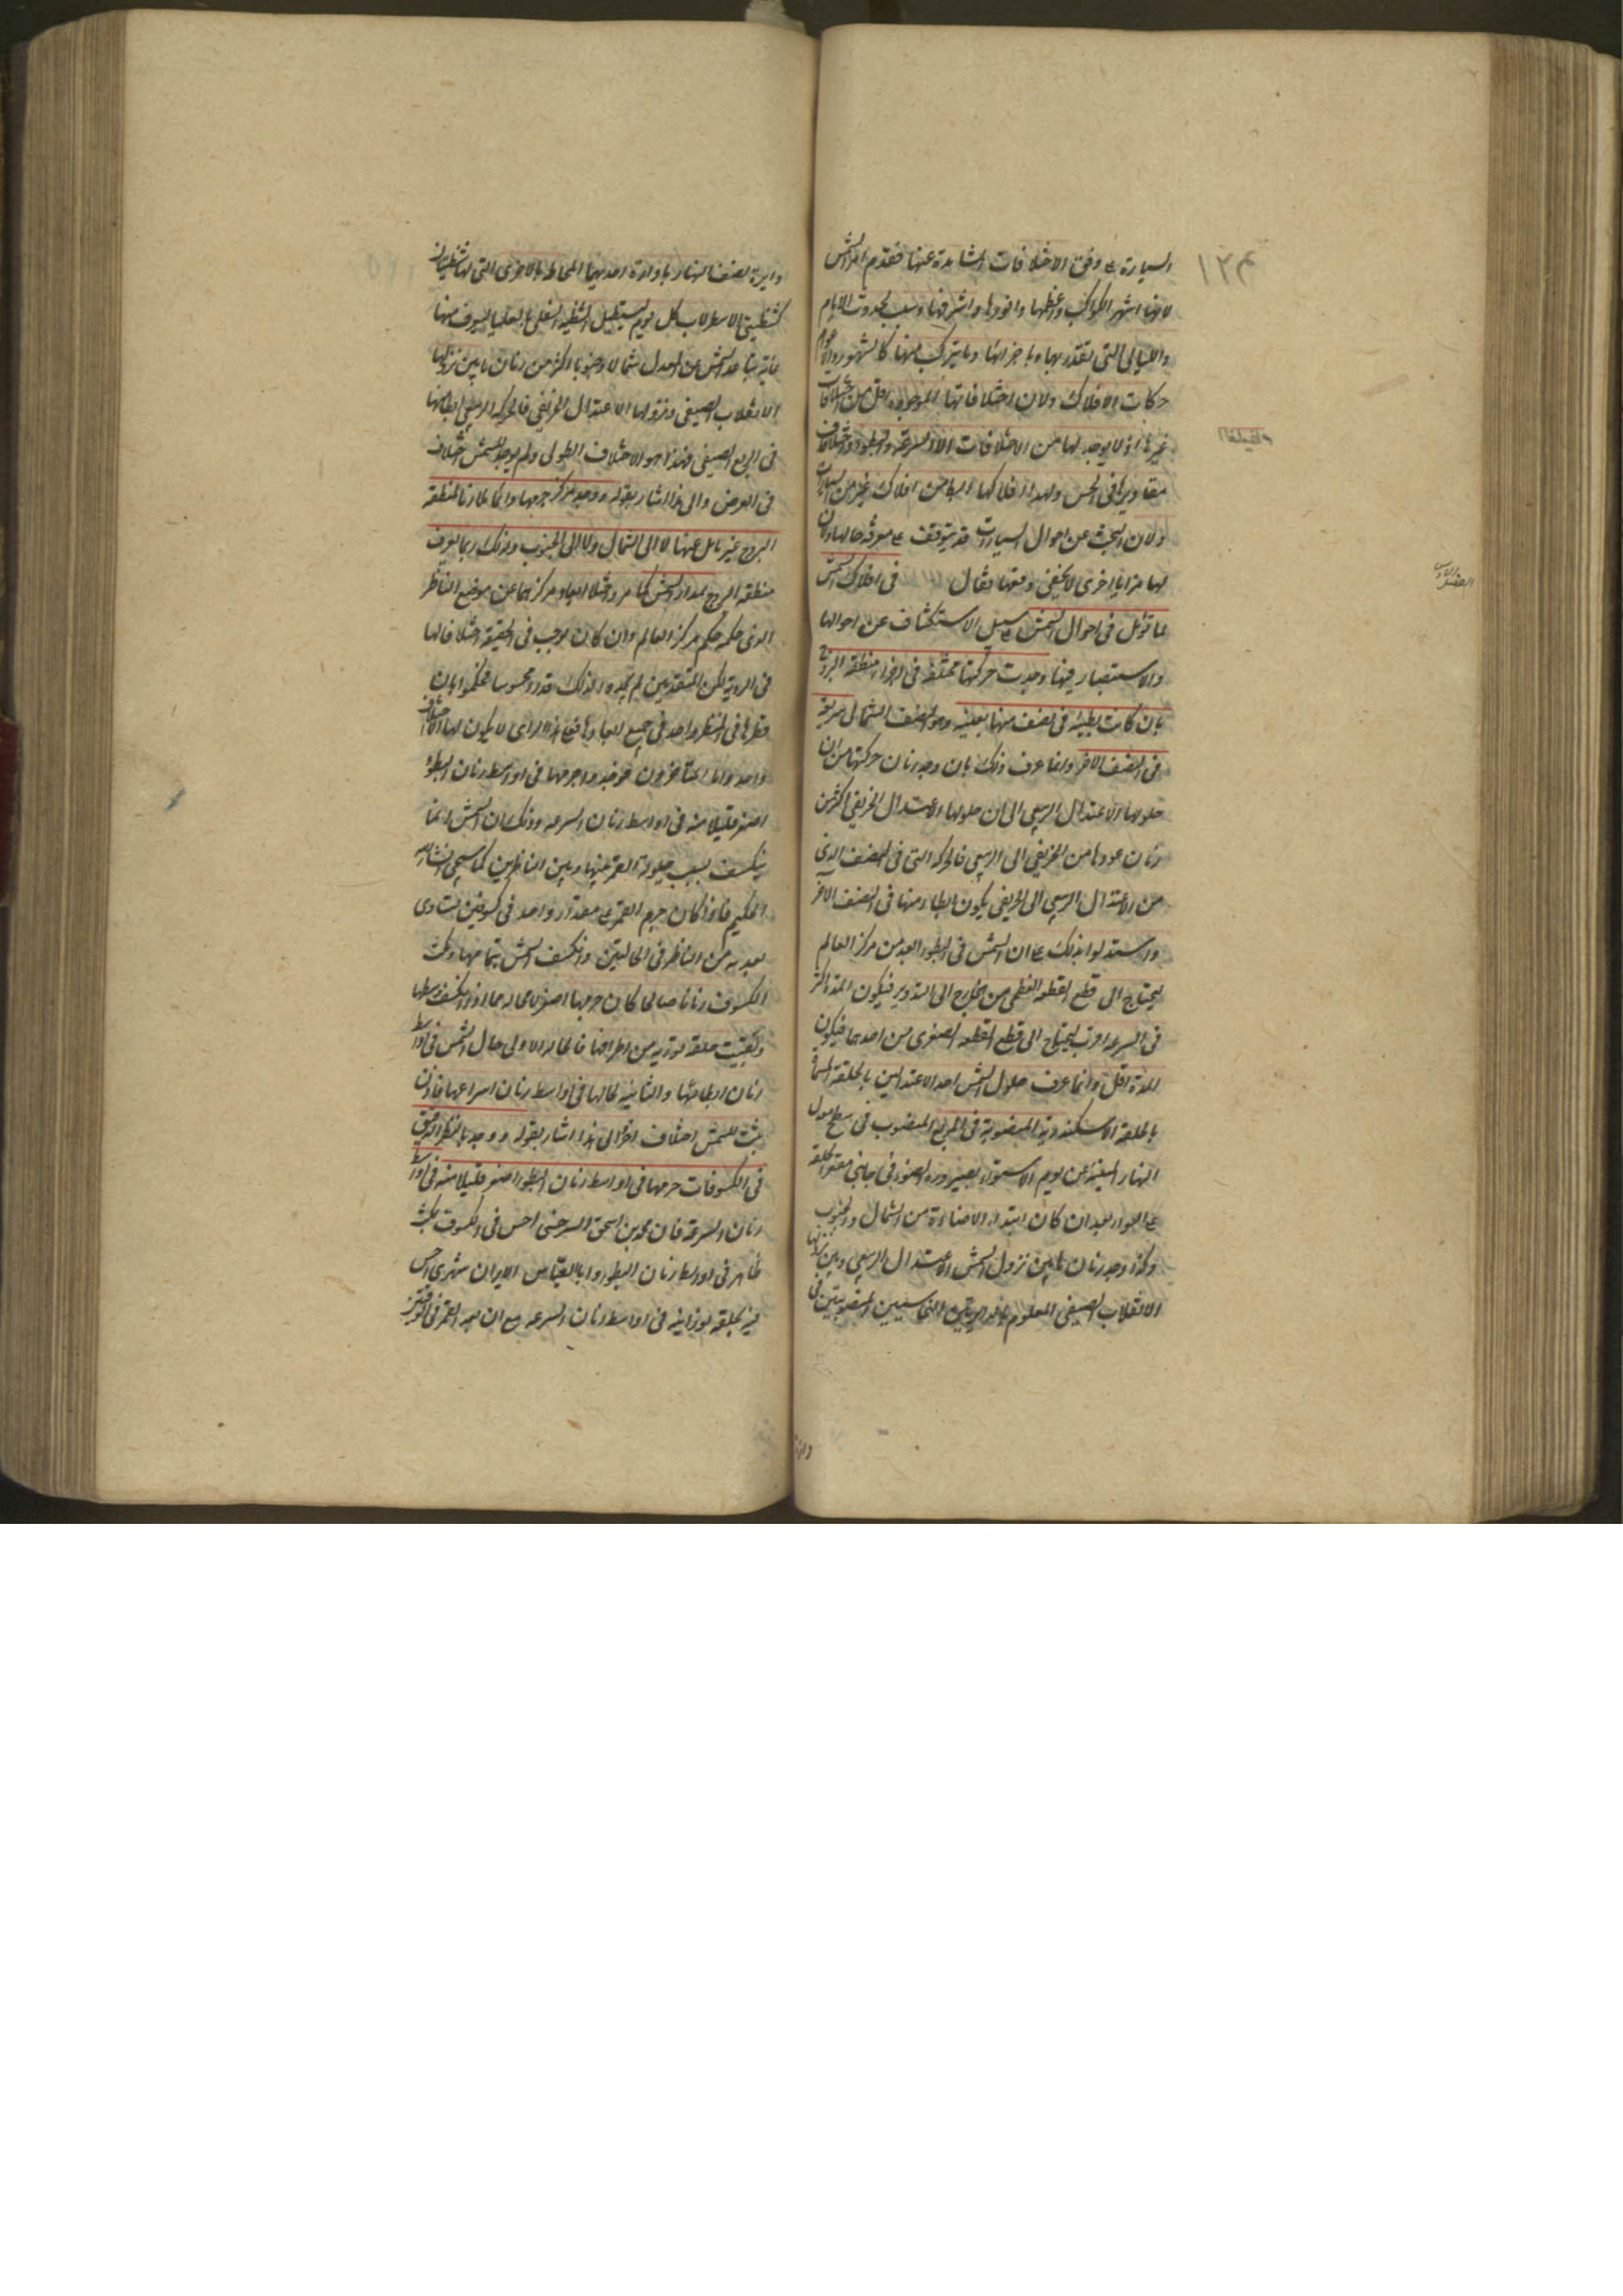 السيارة على وفق الاختلافات المشاهدة عنها فقدم امر الشمس
لانها اشهر الكواكب واعظمها وانورها واشرفها وسبب لحدوث الايام
والليالى التى تقدر بها وباجزائها وما يتركب منها كالشهور والاعوام
حركات الافلاك ولان اختلافاتها الموجودة اقل من اختلافات
غيرها اذ لا يوجد لها من الاختلافات الا السرعة والبطوء واختلاف
مقاديرها فى الحس ولهذا افلاكها من افلاك غيرها من السيارات
ولان البحث عن احوال السيارات قد يتوقف على معرفة حالها ولان
لها مزايا اخرى لا تخفى وفقها فقال فى افلاك الشمس
لما تؤمل فى احوال الشمس على سبيل الاستكشاف عن احوالها
والاستبصار فيها وجدت حركتها مختلفة فى اجزاء منطقة البروج
بان كانت بطيئة فى نصف منها بعينه وهو النصف الشمالى سريعة
فى النصف الاخر وانما عرف ذلك بان وجد زمان حركتها من ان
حلولها الاعتدال الربيعى الى ان حلولها الاعتدال الخريفى اكثر من
زمان عودها من الخريفى الى الربيعى فالحركة التى فى النصف الذى
من الاعتدال الربيعى الى الخريفى يكون ابطاء منها فى النصف الاخر
واستدلوا بذلك على ان الشمس فى البطوء ابعد من مركز العالم
ليحتاج الى قطع القطعة العظمى من الخارج الى التدوير فيكون المدة اكثر
فى السرعة اقرب ليحتاج الى قطع القطعة الصغرى من احدهما فيكون
المدة اقل وانما عرف حلول الشمس احد الاعتدالين بالحلقة المسماة
بالحلقة الاسكندرية المنصوبة فى المربع المنصوب فى سطح معدل
النهار المبنية عن يوم الاستواء بصيرورة الضوء فى جانبى مقعر الحلقة
على السواء بعد ان كان ابتداء الاضاءة من الشمال والجنوب
وكذا وجد زمان ما بين نزول الشمس الاعتدال الربيعى وبين نزولها
الانقلاب الصيفى المعلوم بالدايرتين النحاسيتين المنصوبتين فى
دايرة نصف النهار بادارة احديهما المحاطة بالاخرى التى لها شظيتان
كشظيتى الاسطرلاب كل يوم ليستظل الشظية السفلى بالعليا ليعرف منها
غاية تباعد الشمس عن المعدل شمالا وجنوبا اكثر من زمان ما بين نزولها
الانقلاب الصيفى ونزولها الاعتدال الخريفى فالحركة الربيعى ابطاء منها
فى الربع الصيفى فهذا هو الاختلاف الطولى ولم يوجد للشمس اختلاف
فى العرض والى هذا اشار بقوله ووجد مركز جرمها دائما ملازما لمنطقة
البروج غير مايل عنها لا الى الشمال ولا الى الجنوب وذلك ربما يعرف
منطقة البروج بمدار الشمس كما مر واختلاف ابعاد مركزها عن موضع الناظر
الذى حكمه حكم مركز العالم وان كان يوجب فى الحقيقة اختلافا لها
فى الروية لكن المتقدمين لم يجدوا لذلك قدرا محسوسا فحكموا بان
قطرها فى المنظر واحد فى جميع ابعادها فعلى هذا الراى لا يكون لها الا اختلاف
واحد واما المتاخرون فوجدوا جرمها فى اواسط زمان البطؤ
اصغر قليلا منه فى اواسط زمان السرعة وذلك ان الشمس انما
ينكسف بسبب حيلولة القمر بينها وبين الناظرين كما سيجئ ان شاء الله
الحكيم فاذا كان جرم القمر على مقدار واحد فى كسوفين لتساوى
بعديه من الناظر فى الحالتين وانكسف الشمس بتمامها ومكث
الكسوف زمانا صالحا كان جرمها اصغر لا محالة مما اذا انكسف وسطها
وبقيت حلقة نورية من اطرافها فالحالة الاولى حال الشمس فى اواسط
زمان ابطائها والثانية حالها فى اواسط زمان اسراعها فاذن
يثبت للشمس اختلاف اخر الى هذا اشار بقوله ووجد بالنظر الدقيق
فى الكسوفات جرمها فى اواسط زمان البطوء اصغر قليلا منه فى اواسط
زمان السرعة فان محمد بن اسحق السرخسى احس فى الكسوف بمكث
ظاهر فى اواسط زمان البطوء وابا العباس الايران شهرى احس
فيه بحلقة نورانية فى اواسط زمان السرعة مع ان بعد القمر فى الوقتين